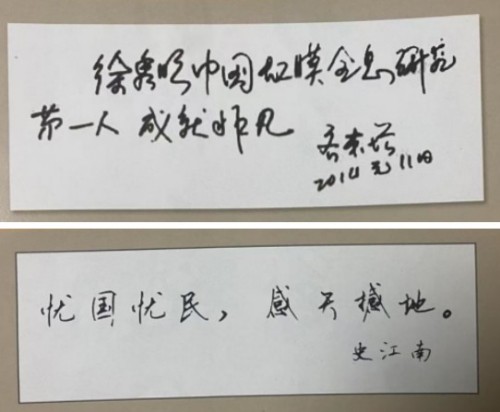 徐秀明中国虹膜全息研究
第一人 成就非凡
齐东芬
2014元11日
忧国忧民，感天撼地。
史江南